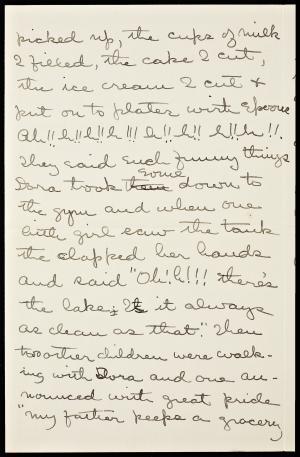 picked up, the cups of milk
I filled, the cake I cut,
the ice cream I cut +
put on to plates with spoons
Oh!! h!! h!! h!!! h!! h!! h!! h!!.
They said such funny things
Dora took some down to
the gym and when one
little girl saw the tank
she clapped her hands
and said "Oh! h!!! there's
the lake; Is it always
as clean as that". Then
two other children were walk-
ing with Dora and one an-
nounced with great pride
"my father keeps a grocery